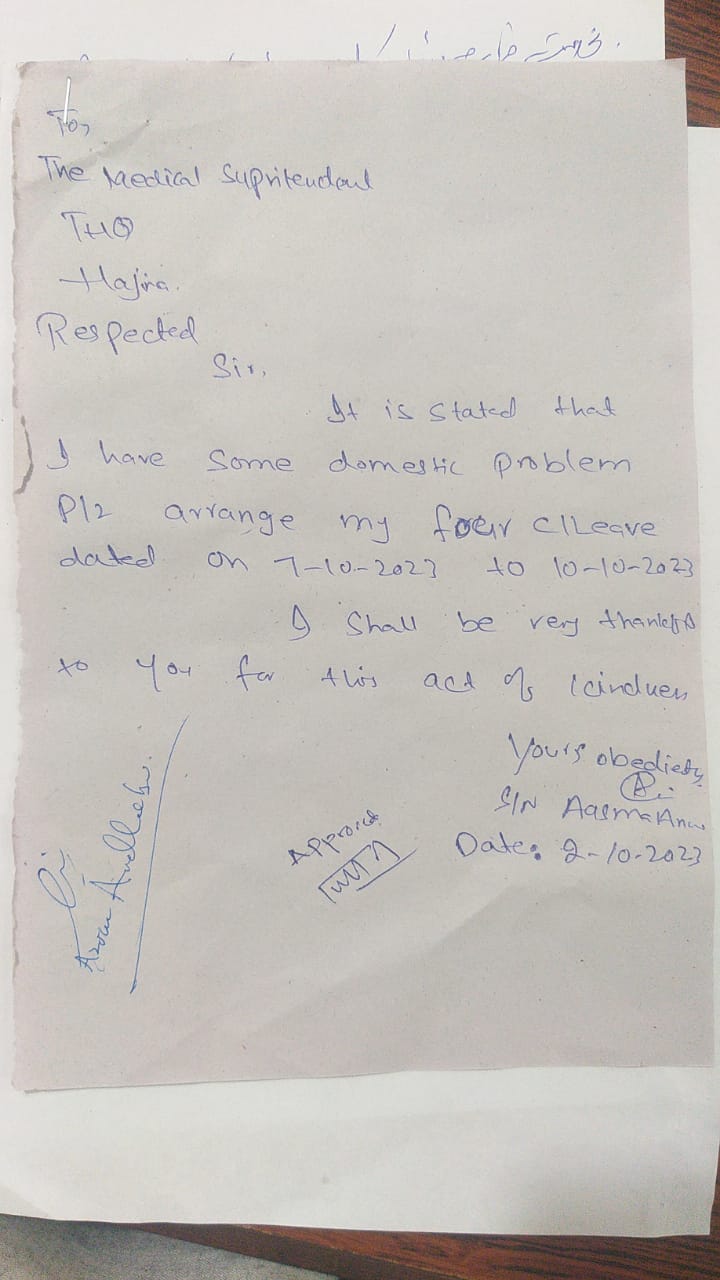 To,
The Medical Supritendant
THQ
Hajira.
Respected
Sir,
It is stated that
I have some domestic problem
Plz arrange my four C/Leave
dated on 7-10-2023 to 10-10-2023
I shall be very thankful
to you for this act of kindness
Yours obediently
S/N Aasma
Date: 2-10-2023
Approved